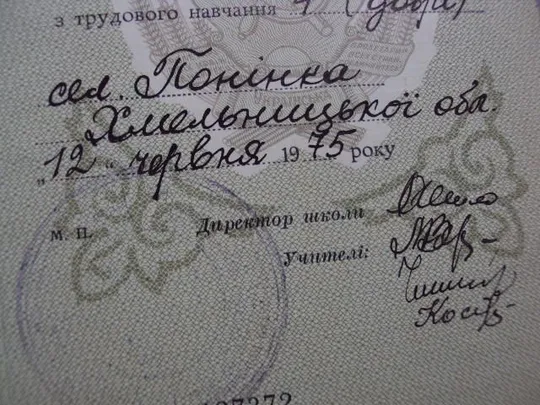 з трудового навчання 4 (добре)
сел. Понінка
Хмельницької обл.
„12" червня 1975 року
м. п. Директор школи
Учителі: